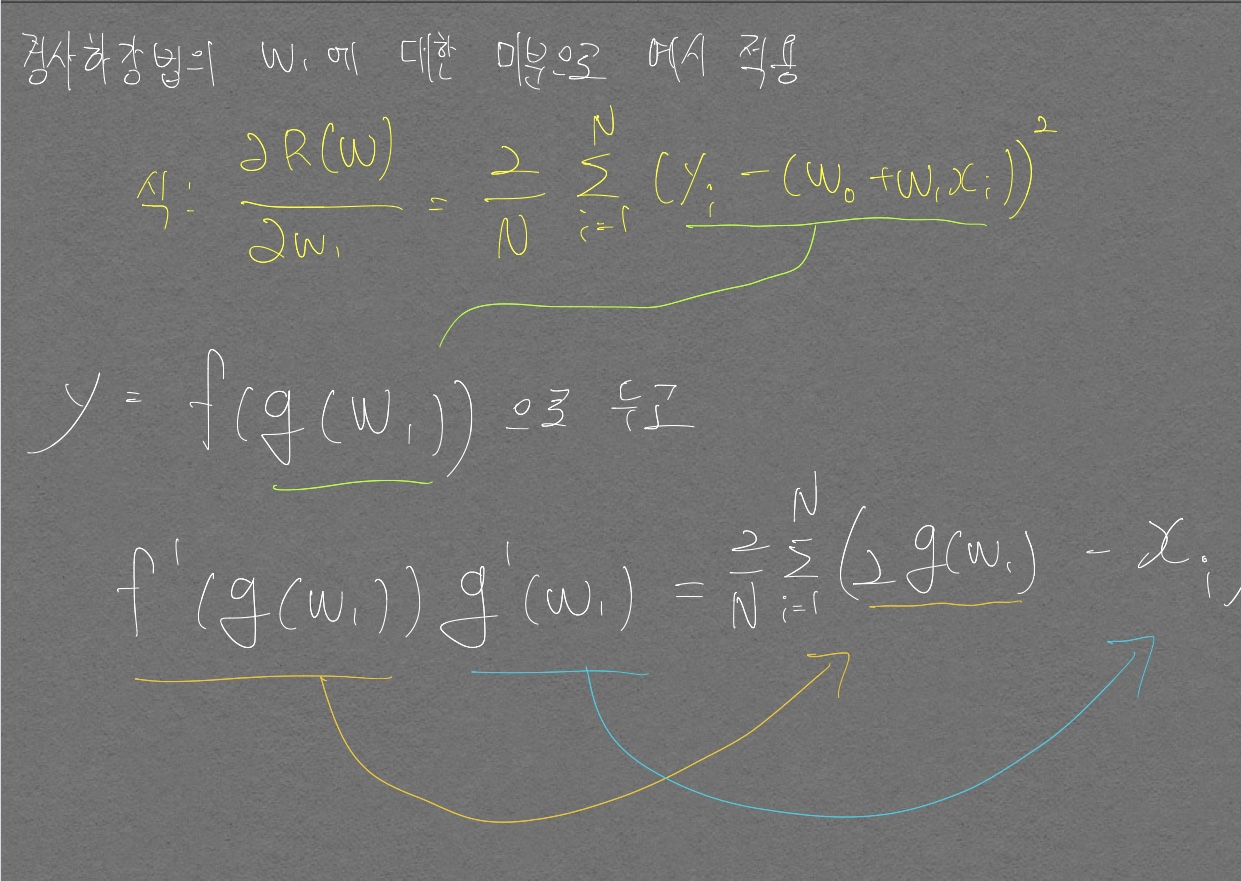 경사하강법의 W₁에 대한 미분으로 에시 적용
식: ∂R(W)/∂W₁ = 2/N Σ_{i=1}^{N} (y_i - (W₀ + W₁x_i))²
y = f(g(W₁)) 으로 두고
f'(g(W₁)) g'(W₁) = 2/N Σ_{i=1}^{N} (2g(W₁) - x_i)